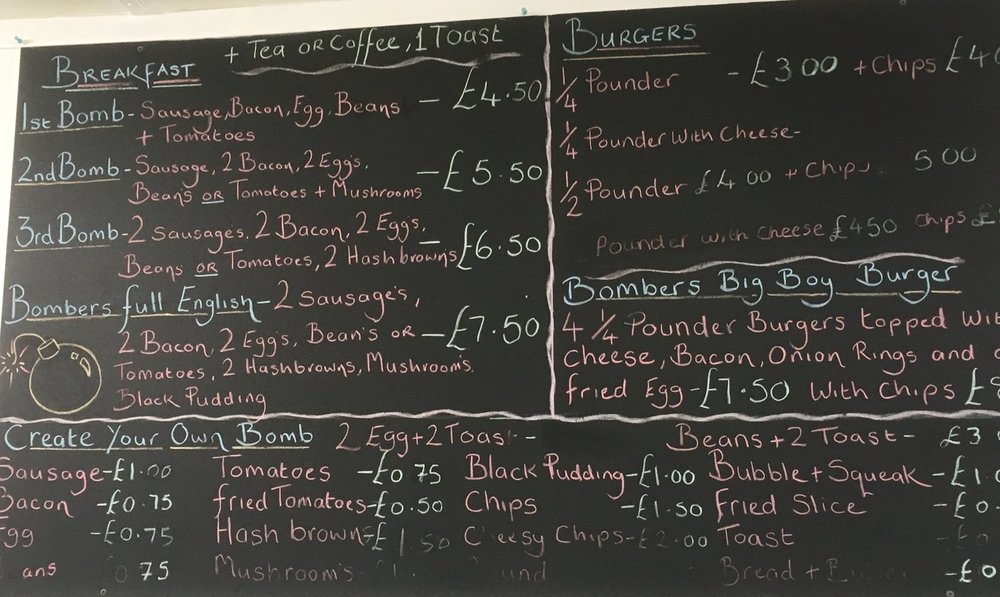 BREAKFAST + TEA OR COFFEE, 1 TOAST
1st Bomb - Sausage, Bacon, Egg, Beans - £4.50
+ Tomatoes
2nd Bomb - Sausage, 2 Bacon, 2 Egg's, - £5.50
Bean's OR Tomatoes + Mushrooms
3rd Bomb - 2 Sausages, 2 Bacon, 2 Eggs, - £6.50
Beans OR Tomatoes, 2 Hash browns
Bombers full English - 2 Sausage's,
2 Bacon, 2 Egg's, Bean's OR - £7.50
Tomatoes, 2 Hashbrowns, Mushrooms.
Black Pudding
BURGERS
1/4 Pounder - £3 00 + Chips
1/4 Pounder With Cheese -
1/2 Pounder £4 00 + Chips 5 00
Pounder with cheese £4 50 chips £
Bombers Big Boy Burger
4 1/4 Pounder Burgers topped
Cheese, Bacon, Onion Rings and
fried Egg - £7.50 With Chips
Create Your Own Bomb 2 Egg + 2 Toast - Beans + 2 Toast - £3
Sausage - £1.00 Tomatoes - £0 75 Black Pudding - £1.00 Bubble + Squeak -
Bacon - £0.75 fried Tomatoes - £0.50 Chips - £1.50 Fried Slice -
Egg - £0.75 Hash brown - £1 50 Cheesy Chips - £2.00 Toast
75 Mushroom's Bread + - £0